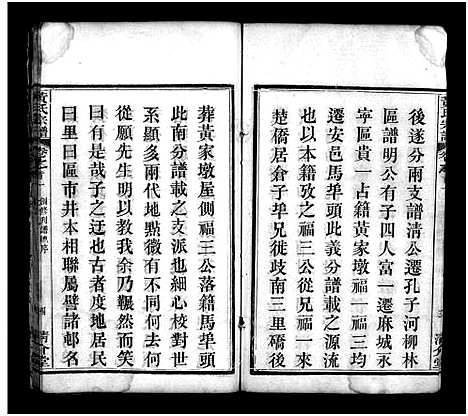 後遂分兩支譜清公遷孔子河柳林
區譜明公有子四人富一遷麻城永
寧區貴一占籍黃家墩福一三均
遷安邑馬埠頭此義分譜載之源流
也義分譜載福一三公從兄福二由
楚僑居倉子埠兄徙歧南三里磽後
黃氏宗譜
葬黃家墩屋側福三公落籍馬埠頭
此南分譜載之支派也細心校對世
系顯多兩代地點微有不同將何去何
從願先生明以教我余乃囅然而笑
曰有是哉子之迂也古者度地居民
曰里曰區市井本相聯屬譬諸邨名